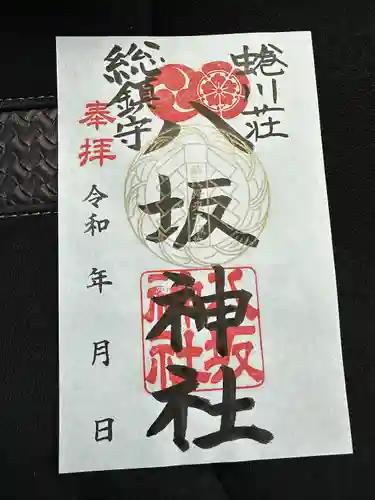 蜷川荘
八坂神社
総鎮守
奉拝
令和 年 月 日
八坂
神社